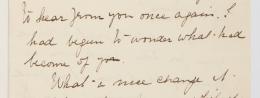 to hear from you once again. I
had begun to wonder what had
become of you.
What a nice change it